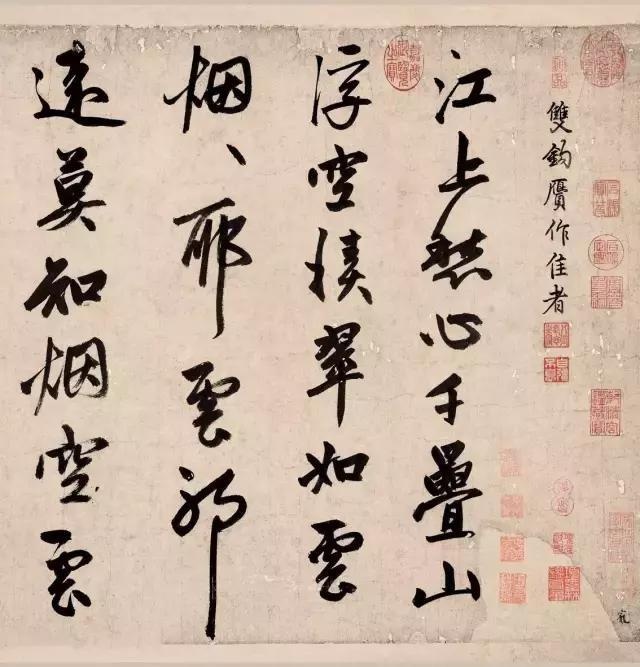 雙鈎贗作佳者
江上愁心千疊山
浮空積翠如雲
烟、耶雲耶
遠莫知烟空雲